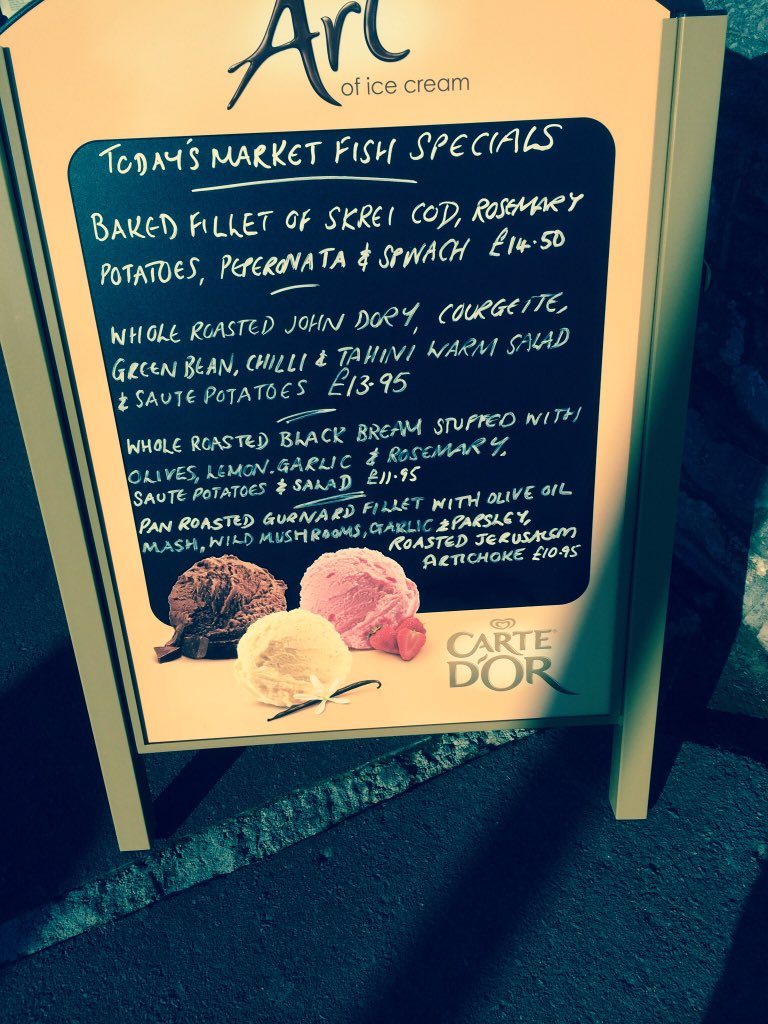 Art
of ice cream
TODAY'S MARKET FISH SPECIALS
BAKED FILLET OF SKREI COD, ROSEMARY
POTATOES, PEPERONATA & SPINACH £14.50
WHOLE ROASTED JOHN DORY, COURGETTE,
GREEN BEAN, CHILLI & TAHINI WARM SALAD
& SAUTE POTATOES £13.95
WHOLE ROASTED BLACK BREAM STUFFED WITH
OLIVES, LEMON. GARLIC & ROSEMARY.
SAUTE POTATOES & SALAD £11.95
PAN ROASTED GURNARD FILLET WITH OLIVE OIL
MASH, WILD MUSHROOMS, GARLIC & PARSLEY,
ROASTED JERUSALEM
ARTICHOKE £10.95
CARTE
D'OR